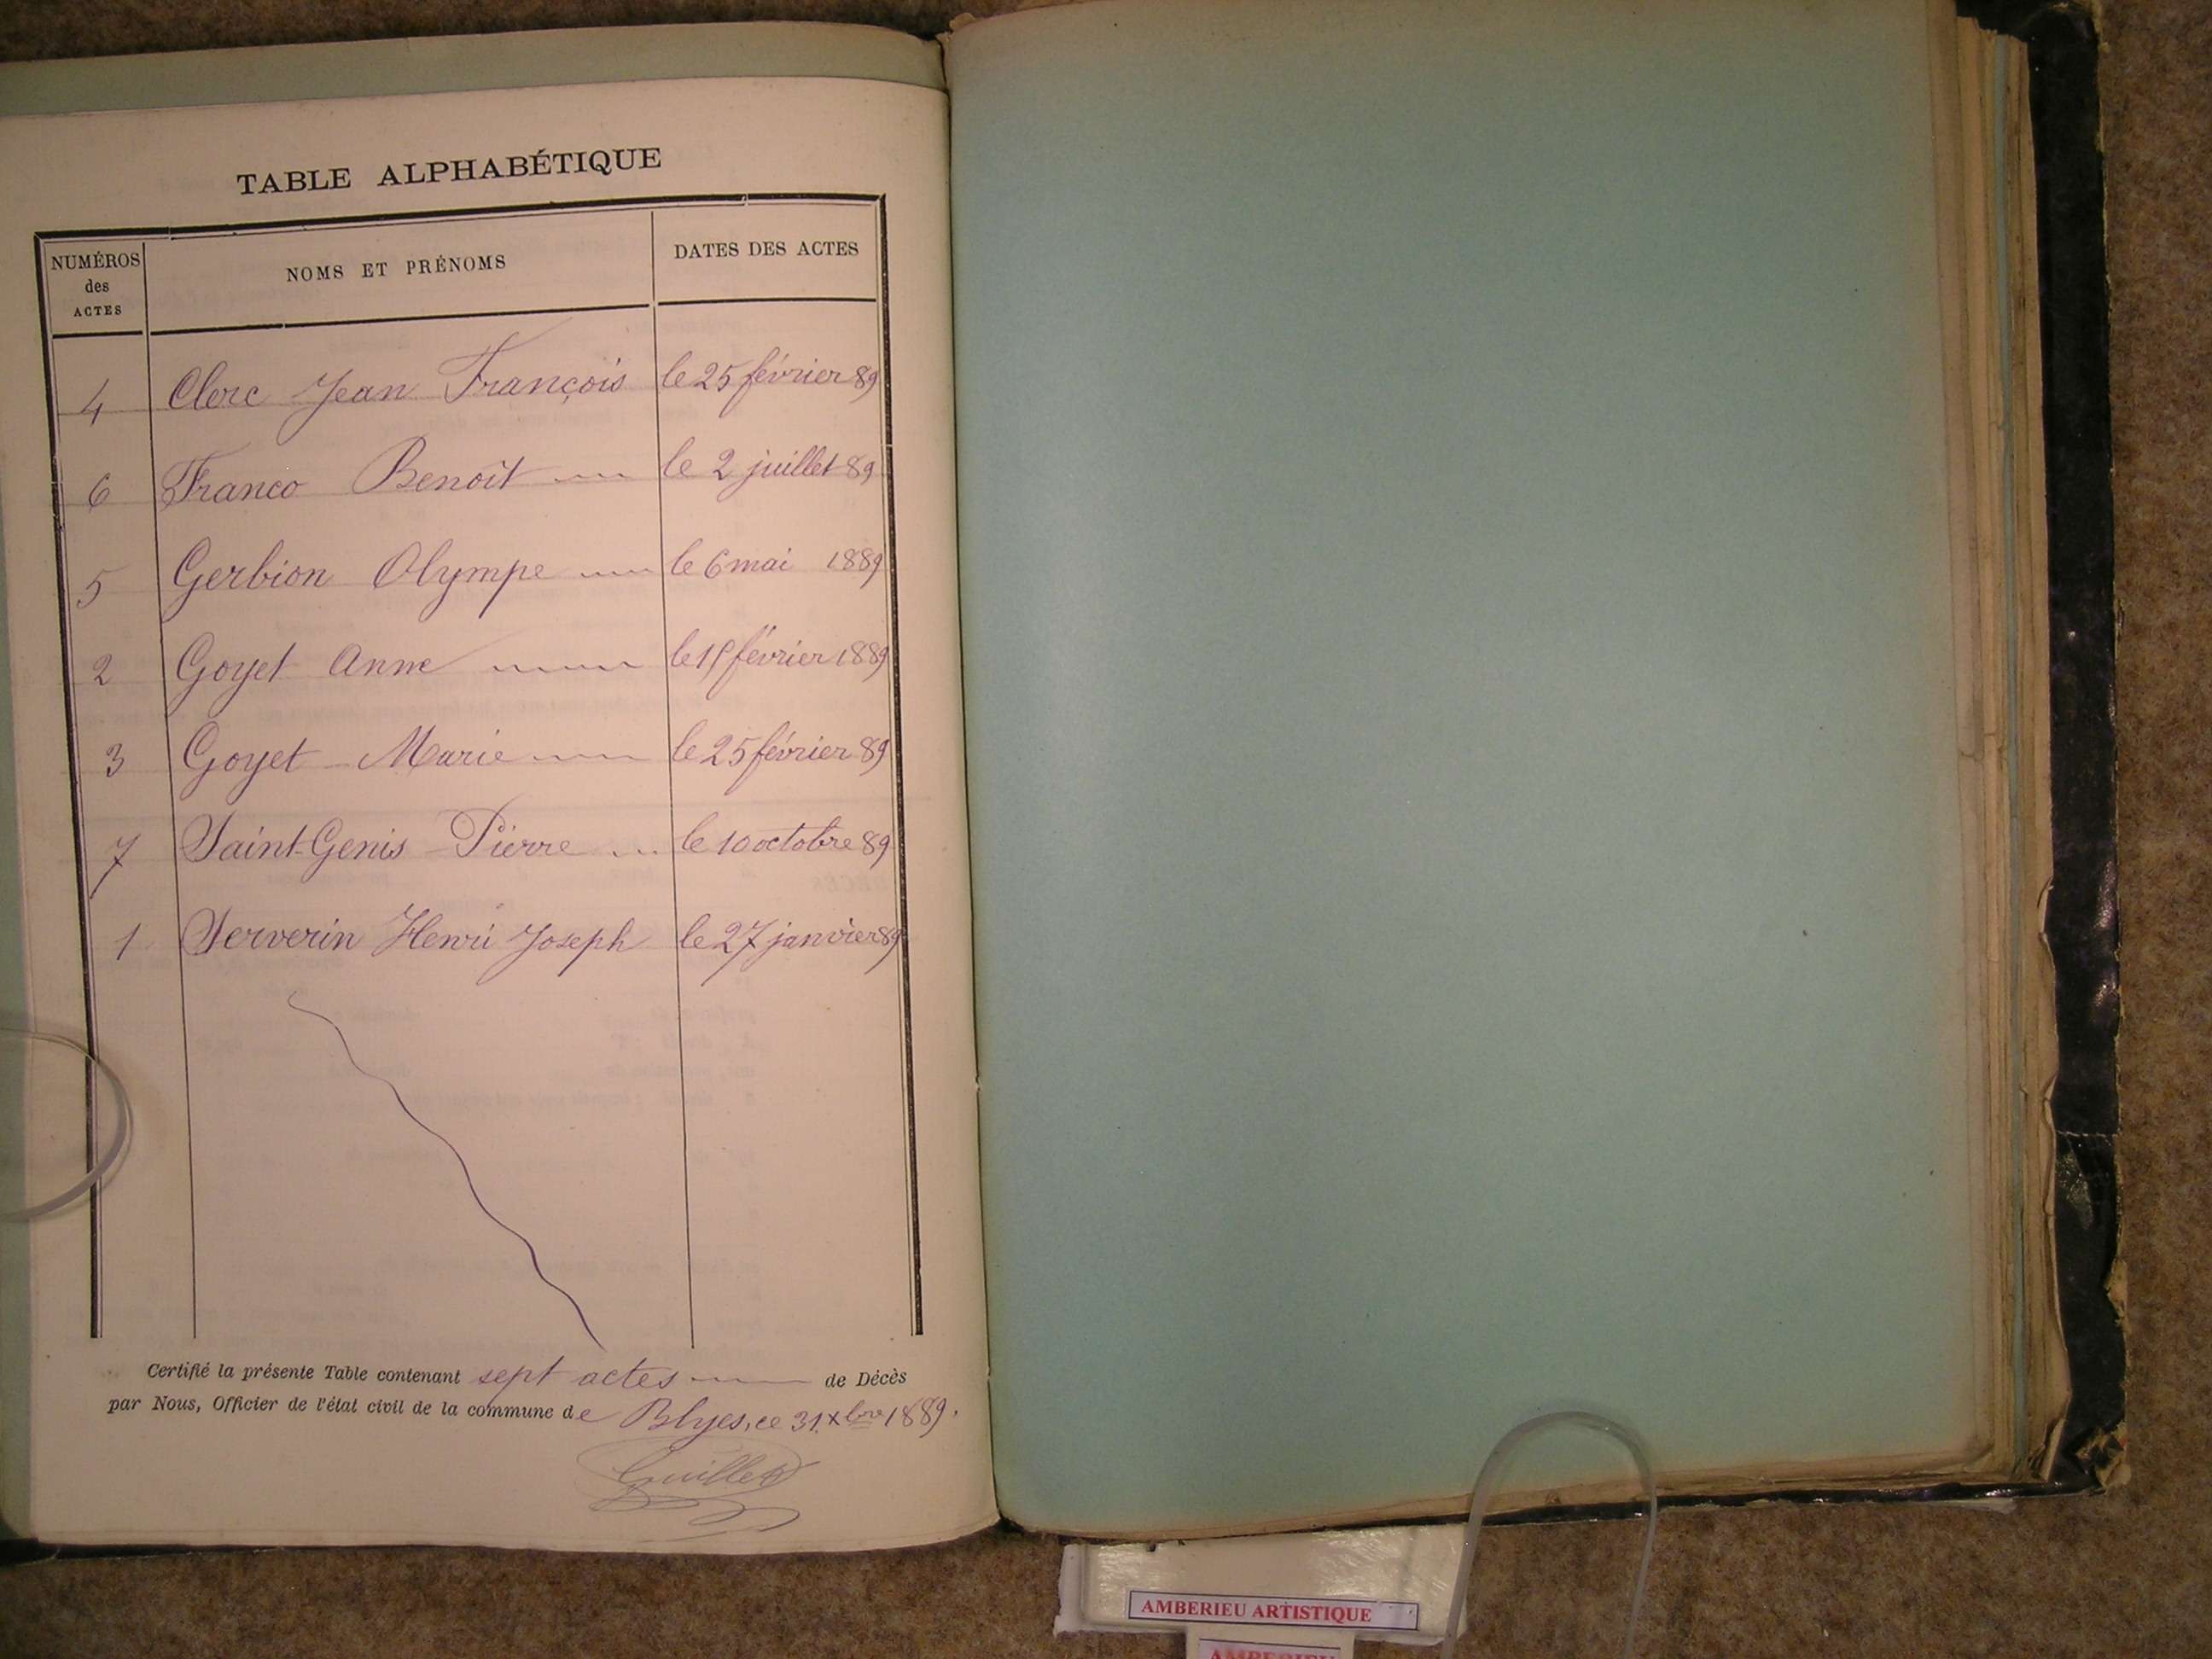 TABLE ALPHABÉTIQUE
NUMÉROS
des
ACTES
NOMS ET PRÉNOMS
DATES DES ACTES
4 Clerc Jean François le 25 février 89
6 Franco Benoît le 2 juillet 89
5 Gerbion Olympe le 6 mai 1889
2 Goyet Anne le février 1889
3 Goyet Marie le 25 février 89
7 Saint-Genis Pierre le 10 octobre 89
1 Serverin Henri Joseph le 27 janvier 89
Certifié la présente Table contenant sept actes de Décès
par Nous, Officier de l'état civil de la commune de Blyes, ce 31 Xbre 1889.
AMBERIEU ARTISTIQUE
AMBERIEU